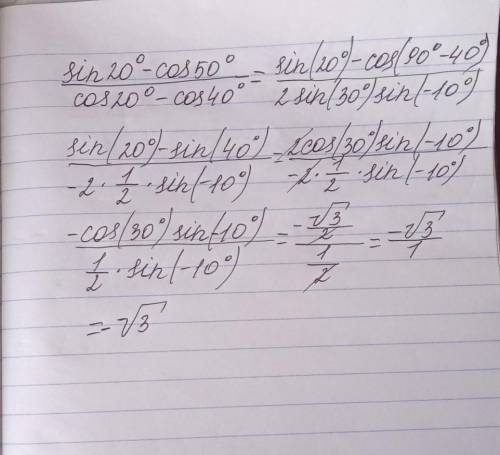 (sin20°-cos50°)/(cos20°-cos40°) = (sin(20°)-cos(90°-40°))/(2sin(30°)sin(-10°))
(sin(20°)-sin(40°))/(-2·1/2·sin(-10°)) = (2cos(30°)sin(-10°))/(-2·1/2·sin(-10°))
(-cos(30°)sin(-10°))/(1/2·sin(-10°)) = (-√3/2)/(1/2) = (-√3)/1
=-√3